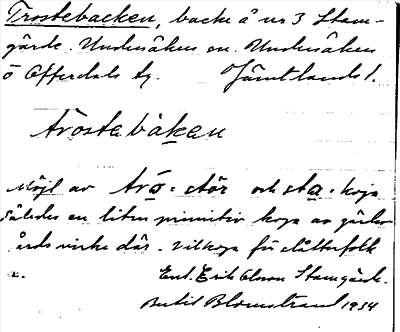 Trostebacken, backe å nr 3 Stam-
gärde. Undersåkers sn. Undersåkers
o Offerdals tg. Jämtlands l.
tròstebàken
Möjl av trò = stör och sta = koja
således en liten primitiv koja av gärds
virke där. Vilkoja för slåtterfolk
Enl. Erik Olsson Stamgärde.
Bertil Blomstrand 1934